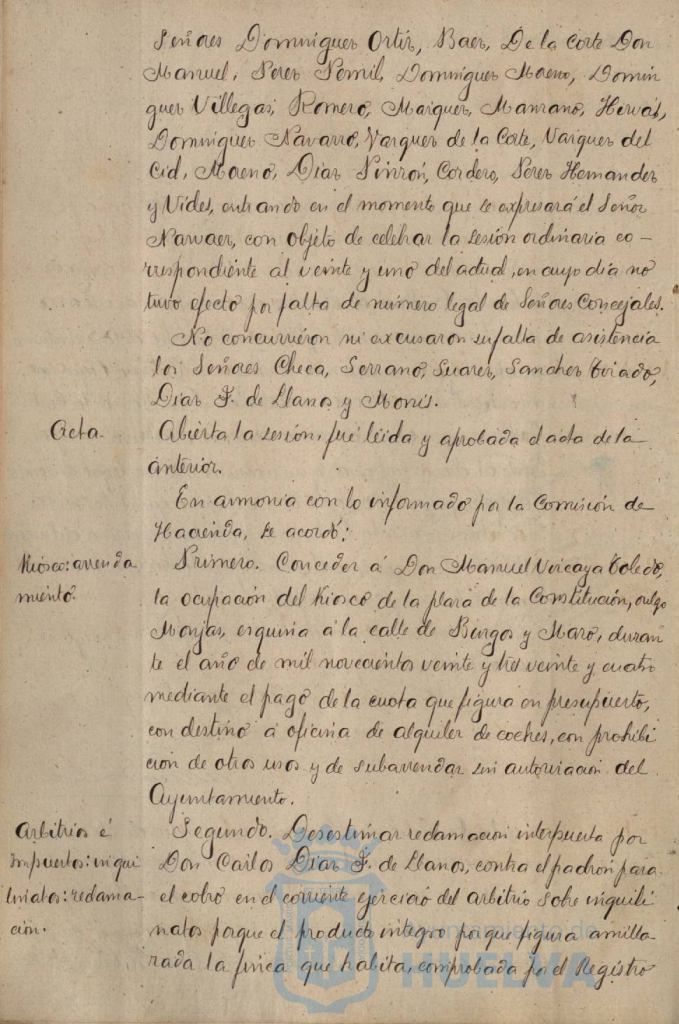 Señores Dominguez Ortiz, Baez, De la Corte Don
Manuel, Perez Pemil, Dominguez Moreno, Domin
guez Villegas, Romero, Marquez, Manzano, Hervás,
Dominguez Navarro, Vazquez de la Corte, Vazquez del
Cid, Moreno, Diaz Pinzón, Cordero, Perez Hernandez
y Vides, entrando en el momento que se expresará el Señor
Narvaez, con objeto de celebrar la sesión ordinaria co-
rrespondiente al veinte y uno del actual, en cuyo dia no
tuvo efecto por falta de número legal de Señores Concejales.
No concurrieron ni excusaron su falta de asistencia
los Señores Checa, Serrano, Suarez, Sanchez Tirado,
Diaz F. de Llanos y Monís.
Acta.
Abierta la sesión, fué leida y aprobada el acta de la
anterior.
En armonia con lo informado por la Comisión de
Hacienda, se acordó:
Kiosco: arrenda
miento.
Primero. Conceder á Don Manuel Vizcaya Toledo,
la ocupación del Kiosco de la plaza de la Constitución, vulgo
Monjas, esquina á la calle de Burgos y Mazo, duran
te el año de mil novecientos veinte y tres veinte y cuatro
mediante el pago de la cuota que figura en presupuesto,
con destino á oficina de alquiler de coches, con prohibi
ción de otros usos y de subarrendar sin autorización del
Ayuntamiento.
Arbitrios é
Impuestos: inqui
linatos: reclama-
ción.
Segundo. Desestimar reclamación interpuesta por
Don Carlos Diaz F. de Llanos, contra el padrón para
el cobro en el corriente ejercicio del arbitrio sobre inquili
natos porque el producto integro por que figura amilla-
rada la finca que habita, comprobada por el Registro
Ayuntamiento de
HUELVA